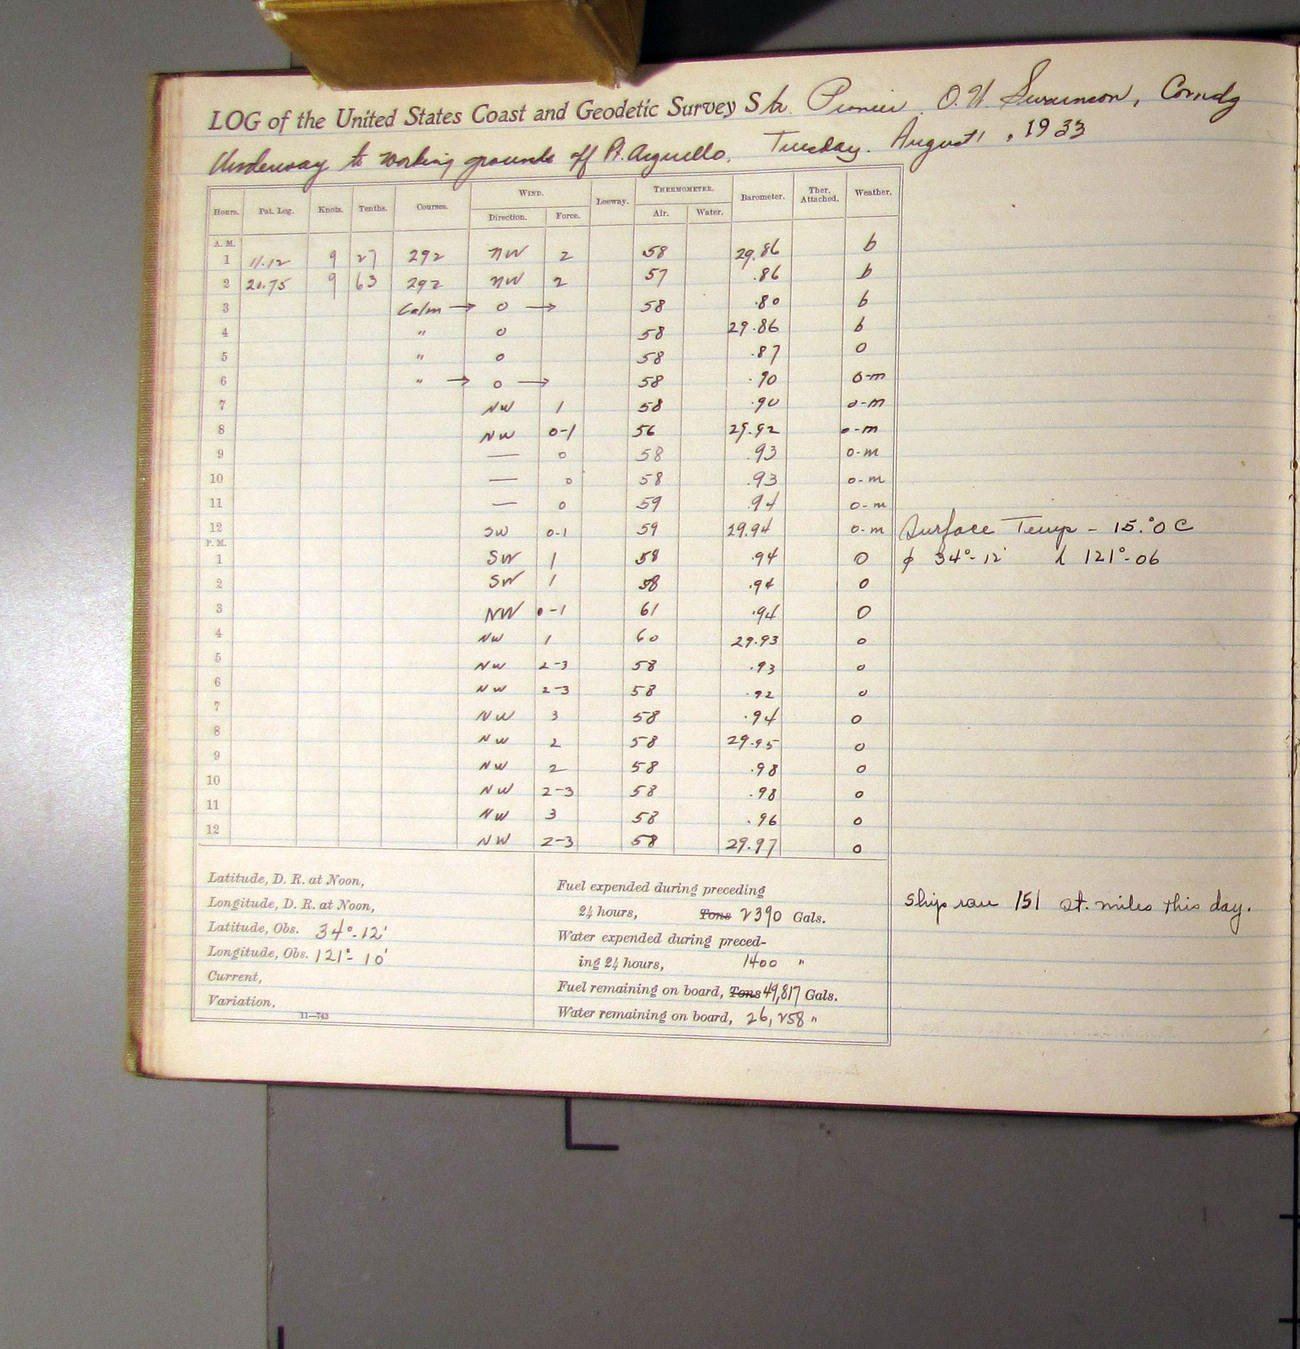 LOG of the United States Coast and Geodetic Survey Str. Pioneer O. W. Swainson, Comndg
Underway to working grounds off Pt. Arguello. Tuesday. August 1, 1933
Hours. Pat. Log. Knots. Tenths. Courses. WIND. Leeway. THERMOMETER. Barometer. Ther. Attached. Weather.
Direction. Force. Air. Water.
A. M.
1 11.12 9 27 292 NW 2 58 29.86 b
2 20.75 9 63 292 NW 2 57 .86 b
3 Calm → 0 → 58 .80 b
4 " 0 58 29.86 b
5 " 0 58 .87 0
6 " → 0 → 58 .90 0-m
7 NW 1 58 .90 0-m
8 NW 0-1 56 29.92 0-m
9 — 0 58 .93 0-m
10 — 0 58 .93 0-m
11 — 0 59 .94 0-m
12 SW 0-1 59 29.94 0-m Surface Temp - 15.°0 C
P. M.
1 SW 1 58 .94 0 ϕ 34°-12' λ 121°-06
2 SW 1 58 .94 0
3 NW 0-1 61 .94 0
4 NW 1 60 29.93 0
5 NW 2-3 58 .93 0
6 NW 2-3 58 .92 0
7 NW 3 58 .94 0
8 NW 2 58 29.95 0
9 NW 2 58 .98 0
10 NW 2-3 58 .98 0
11 NW 3 58 .96 0
12 NW 2-3 58 29.97 0
Latitude, D. R. at Noon,
Longitude, D. R. at Noon,
Latitude, Obs. 34°-12'
Longitude, Obs. 121°-10'
Current,
Variation,
11—743
Fuel expended during preceding
24 hours, Tons 2390 Gals.
Water expended during preced-
ing 24 hours, 1400 "
Fuel remaining on board, Tons 49,817 Gals.
Water remaining on board, 26,258 "
Ship ran 151 st. miles this day.